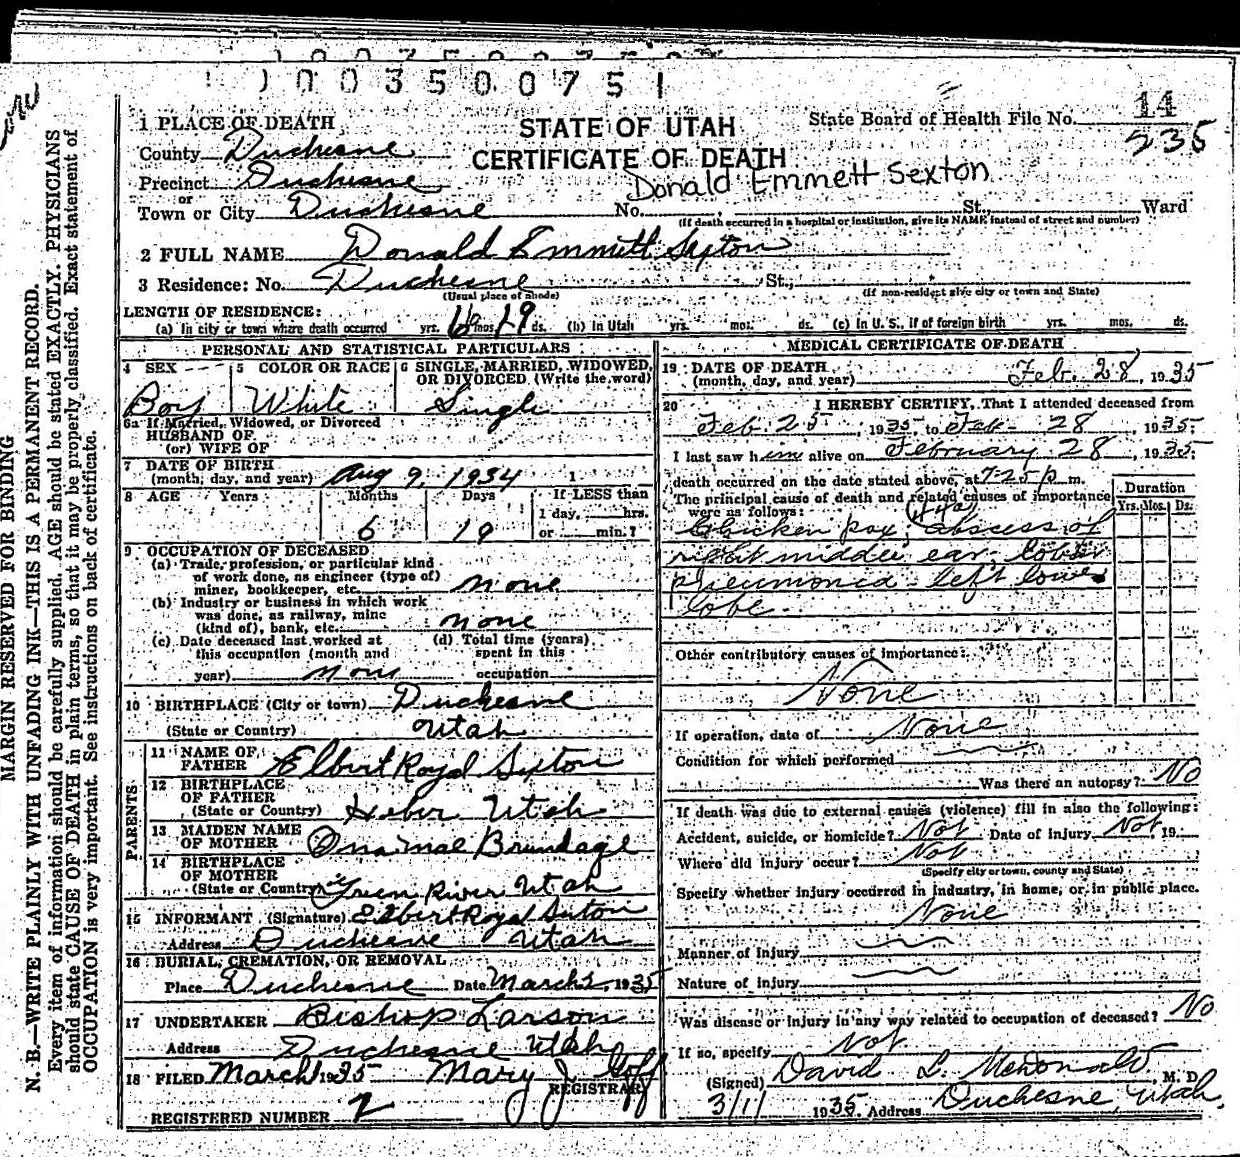 1003500751
1 PLACE OF DEATH
STATE OF UTAH
State Board of Health File No. 14
235
County Duchesne
CERTIFICATE OF DEATH
Precinct Duchesne
Donald Emmett Sexton
or
Town or City Duchesne No. St., Ward
(If death occurred in a hospital or institution, give its NAME instead of street and number)
2 FULL NAME Donald Emmett Sexton
3 Residence: No. Duchesne St.,
(Usual place of abode) (If non-resident give city or town and State)
LENGTH OF RESIDENCE:
(a) In city or town where death occurred yrs. 6 mos. 19 ds. (b) In Utah yrs. mos. ds. (c) In U. S., if of foreign birth yrs. mos. ds.
PERSONAL AND STATISTICAL PARTICULARS
4 SEX 5 COLOR OR RACE 6 SINGLE, MARRIED, WIDOWED,
OR DIVORCED (Write the word)
Boy White Single
6a If Married, Widowed, or Divorced
HUSBAND OF
(or) WIFE OF
7 DATE OF BIRTH
(month, day, and year) Aug 9, 1934 1
8 AGE Years Months Days If LESS than
1 day, hrs.
6 19 or min.?
9 OCCUPATION OF DECEASED
(a) Trade, profession, or particular kind
of work done, as engineer (type of)
miner, bookkeeper, etc. none
(b) Industry or business in which work
was done, as railway, mine
(kind of), bank, etc. none
(c) Date deceased last worked at (d) Total time (years)
this occupation (month and spent in this
year) none occupation
10 BIRTHPLACE (City or town) Duchesne
(State or Country) Utah
PARENTS
11 NAME OF
FATHER Elbert Royal Sexton
12 BIRTHPLACE
OF FATHER
(State or Country) Heber Utah
13 MAIDEN NAME
OF MOTHER Ona Mae Brundage
14 BIRTHPLACE
OF MOTHER
(State or Country) Green River Utah
15 INFORMANT (Signature) Elbert Royal Sexton
Address Duchesne Utah
16 BURIAL, CREMATION, OR REMOVAL
Place Duchesne Date March 2, 1935
17 UNDERTAKER Bishop Larson
Address Duchesne Utah
18 FILED March 1 1935 Mary J. Goff
REGISTRAR
REGISTERED NUMBER 2
MEDICAL CERTIFICATE OF DEATH
19 DATE OF DEATH
(month, day, and year) Feb. 28, 1935
20 I HEREBY CERTIFY, That I attended deceased from
Feb. 25, 1935 to Feb- 28, 1935;
I last saw him alive on February 28, 1935;
death occurred on the date stated above, at 7:25 p m.
The principal cause of death and related causes of importance
were as follows:
Duration
Yrs. Mos. Ds.
Chicken pox; abscess of
right middle ear; lobar
pneumonia - left lower
lobe.
Other contributory causes of importance:
None
If operation, date of None
Condition for which performed
Was there an autopsy? No
If death was due to external causes (violence) fill in also the following:
Accident, suicide, or homicide? Not Date of injury Not 19
Where did injury occur? Not
(Specify city or town, county and State)
Specify whether injury occurred in industry, in home, or in public place.
None
Manner of injury
Nature of injury
Was disease or injury in any way related to occupation of deceased? No
If so, specify Not
(Signed) David L. McDonald, M. D.
3/1/ 1935 Address Duchesne, Utah.
MARGIN RESERVED FOR BINDING
N. B.—WRITE PLAINLY WITH UNFADING INK—THIS IS A PERMANENT RECORD.
Every item of information should be carefully supplied. AGE should be stated EXACTLY. PHYSICIANS
should state CAUSE OF DEATH in plain terms, so that it may be properly classified. Exact statement of
OCCUPATION is very important. See instructions on back of certificate.